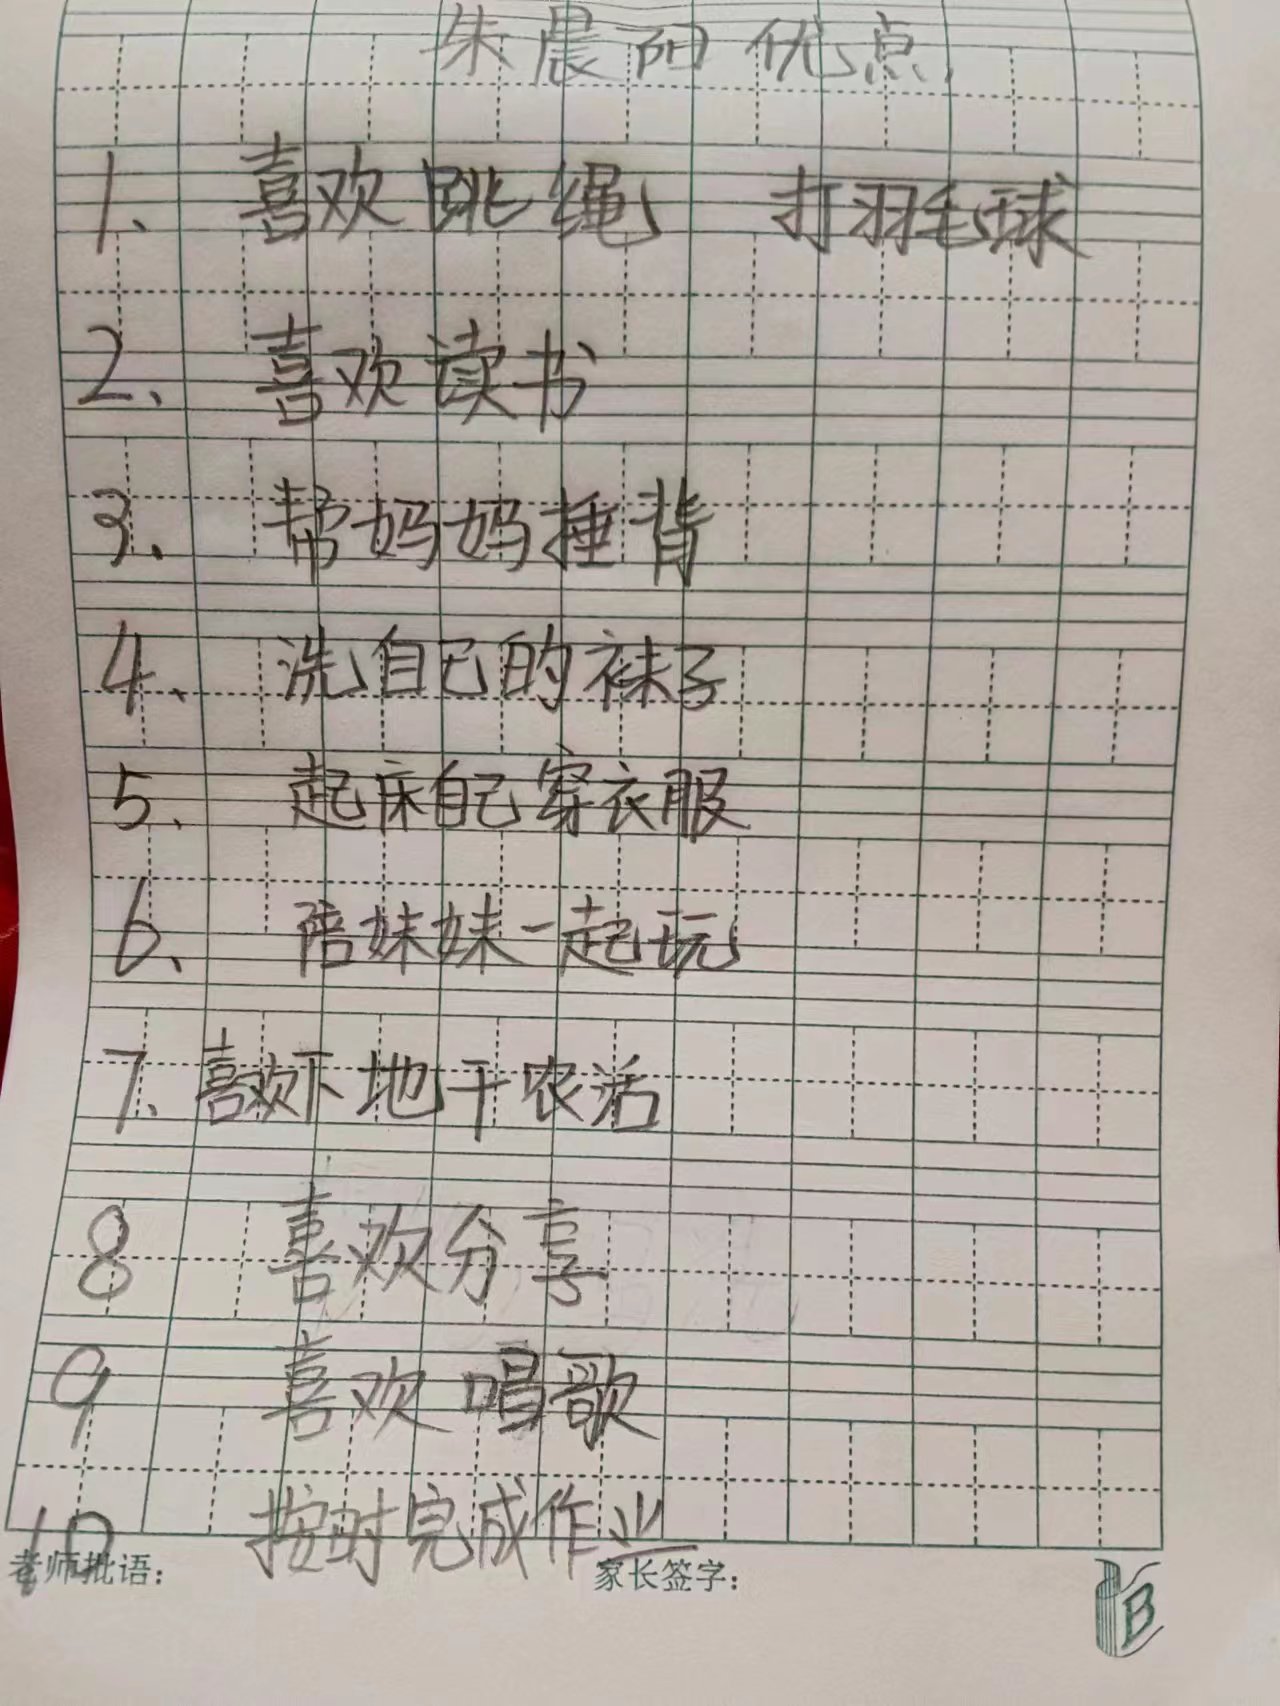 朱晨阳 优点
1、喜欢跳绳 打羽毛球
2、喜欢读书
3、帮妈妈捶背
4、洗自己的袜子
5、起床自己穿衣服
6、陪妹妹一起玩
7、喜欢下地干农活
8 喜欢分享
9 喜欢唱歌
10 按时完成作业
老师批语： 家长签字：
B